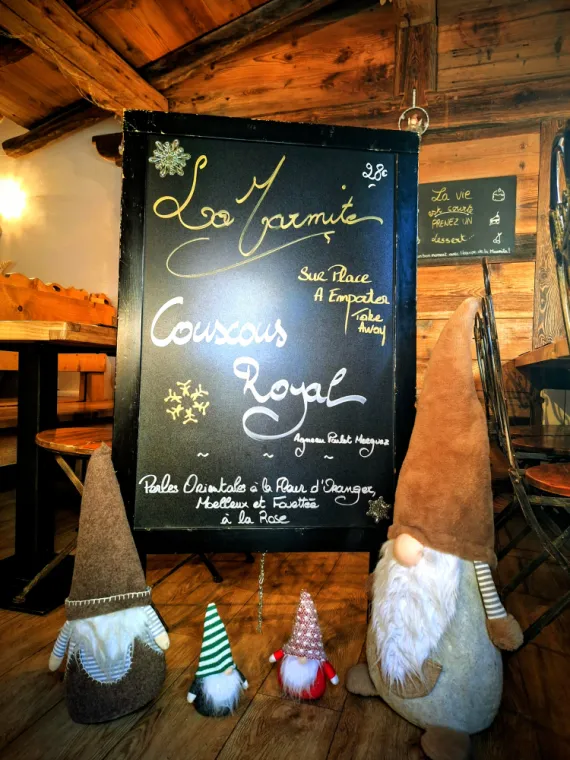 28€
La Marmite
Sur Place
A Emporter
Take
Away
Couscous
Royal
Agneau Poulet Merguez
Perles Orientales à la Fleur d'Oranger,
Moelleux et
à la Rose
La vie
est courte
PRENEZ UN
dessert
de la Marmite!